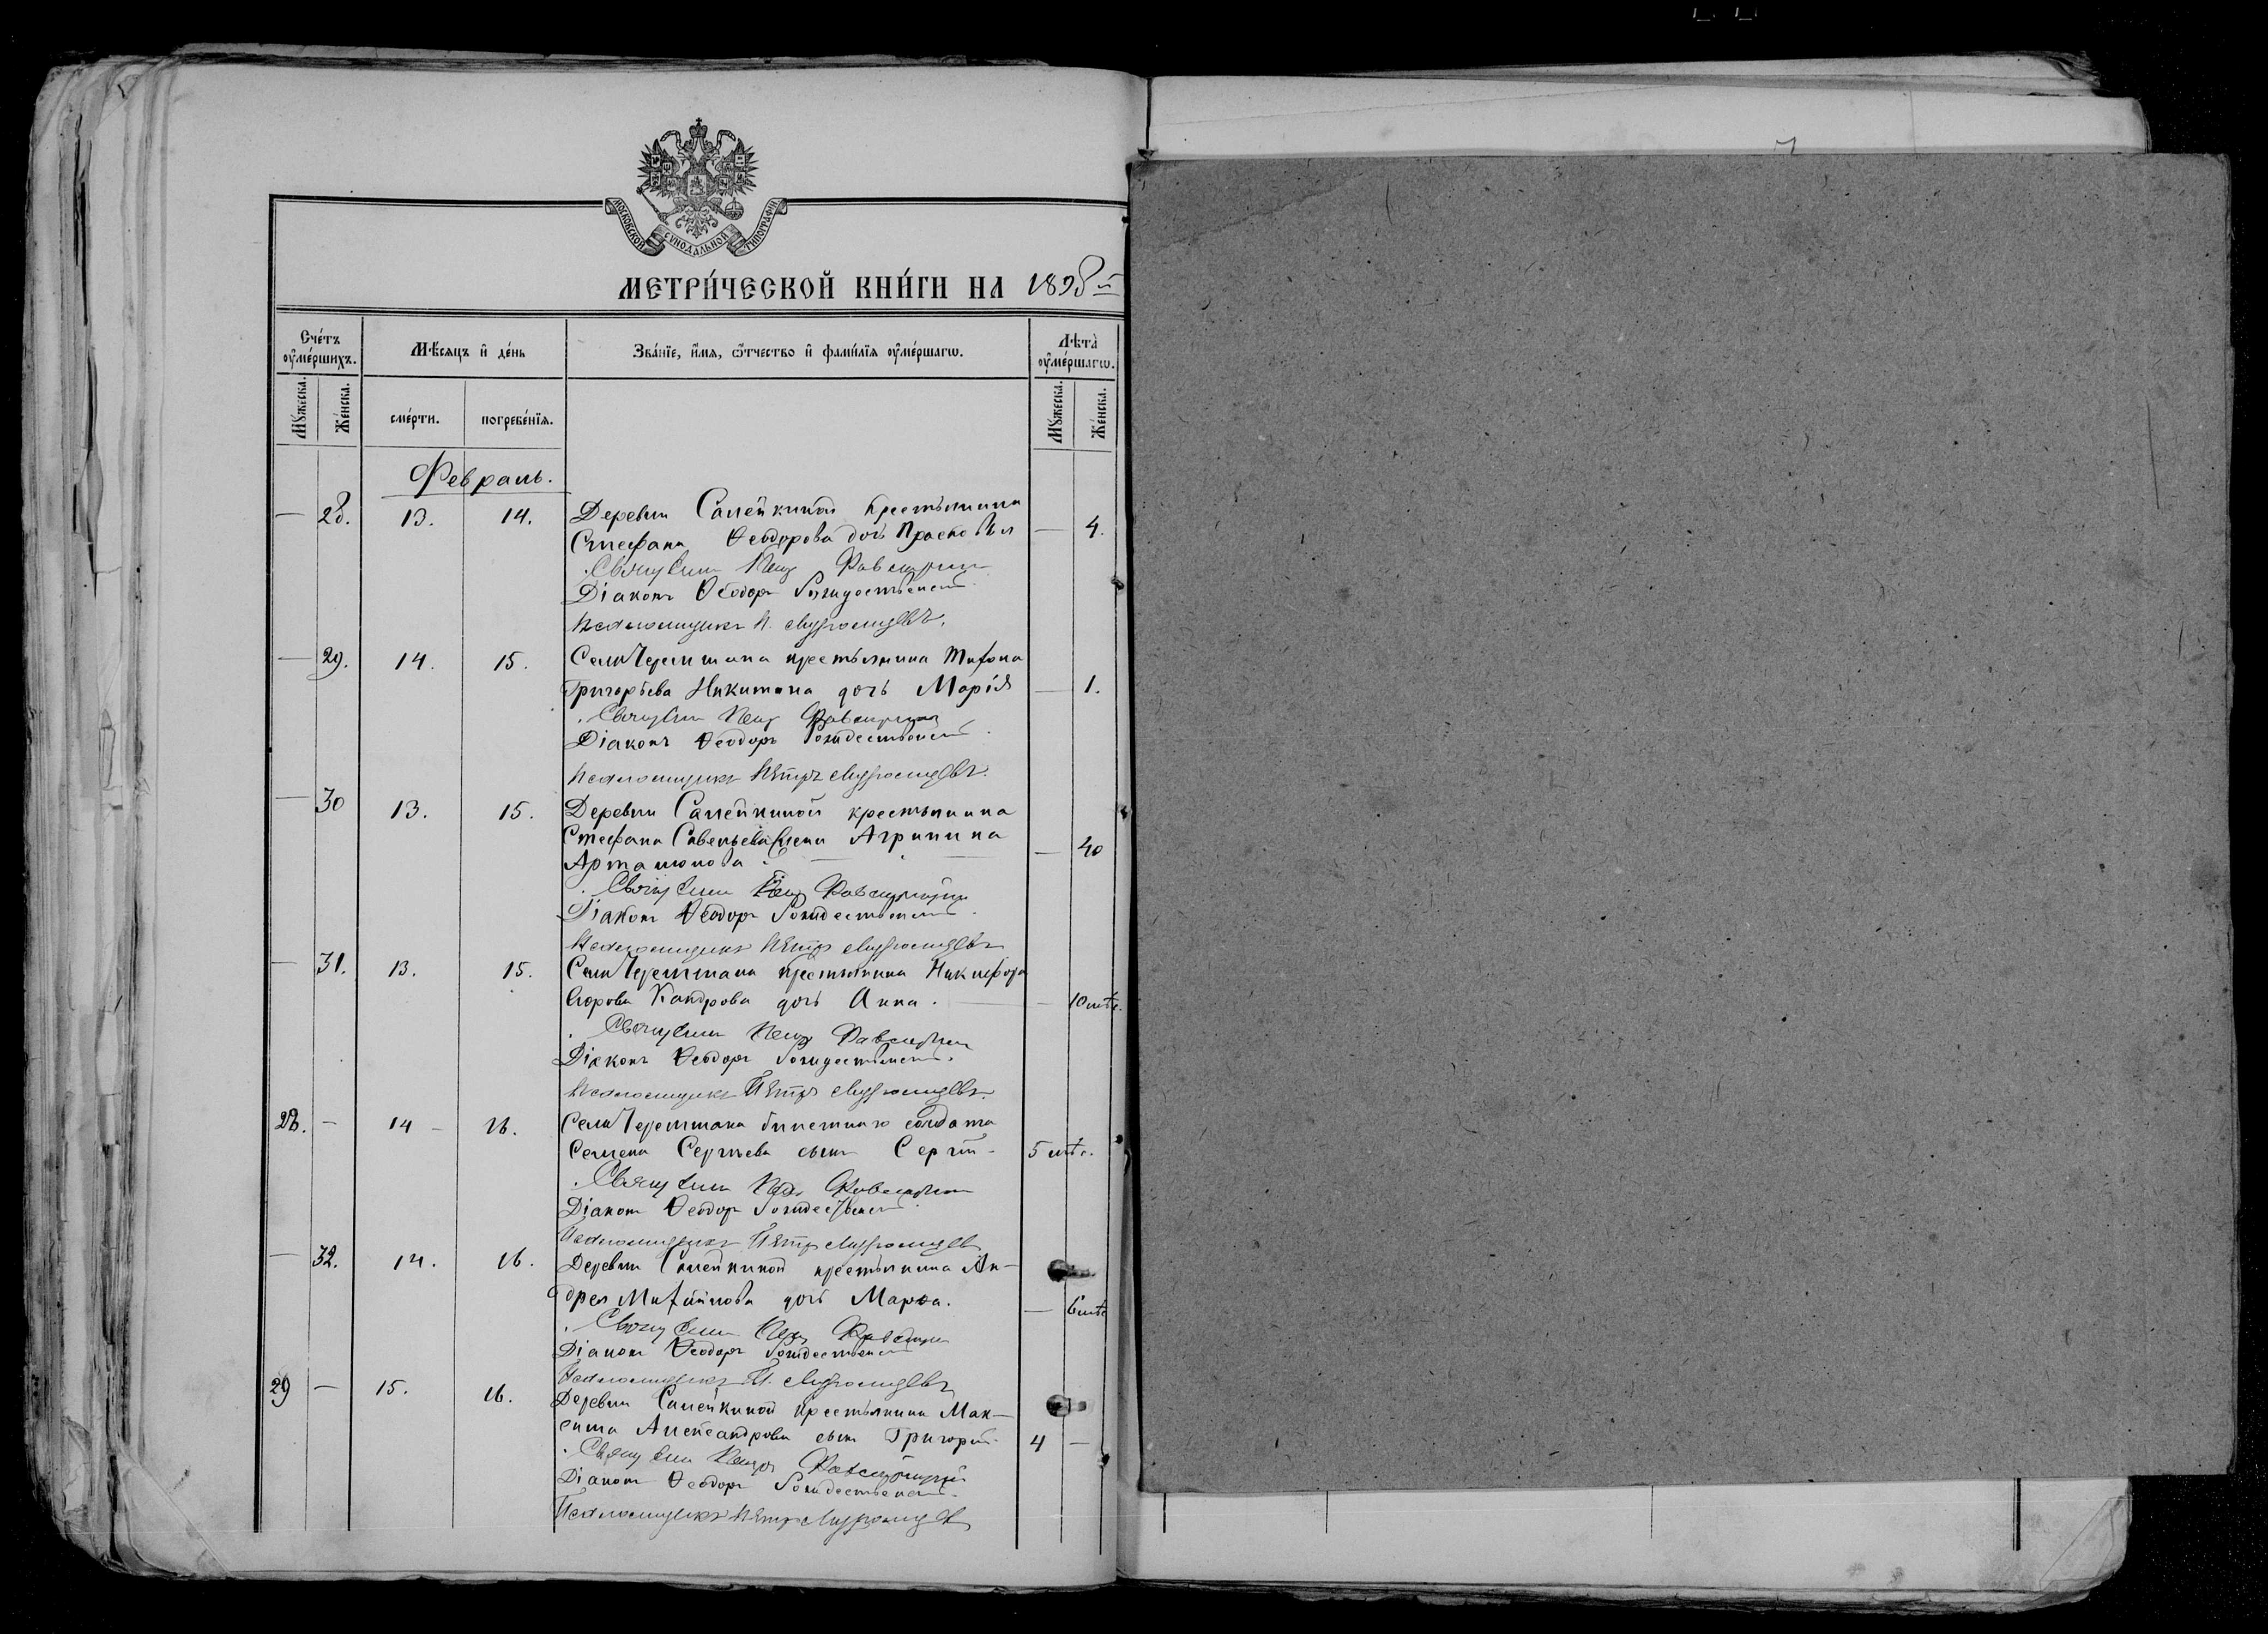 МОСКОВСКОЙ СѴНОДАЛЬНОЙ ТИПОГРАФІИ
МЕТРИ́ЧЕСКОЙ КНИ́ГИ НА 1898й
Сче́тъ оу҆ме́ршихъ.
Мѣ́сяцъ и҆ де́нь
Зва́нїе, и҆́мѧ, ѻ҆́тчество и҆ фами́лїѧ оу҆ме́ршагѡ.
Лѣта̀ оу҆ме́ршагѡ.
Мꙋ́жеска.
Же́нска.
сме́рти.
погребе́нїѧ.
Мꙋ́жеска.
Же́нска.
Февраль.
— 28. 13. 14. Деревни Самейкиной крестьянина
Стефана Ѳеодорова дочь Прасковья — 4.
Священникъ
Діаконъ Ѳеодоръ Рождественскій
Псаломщикъ П.
— 29. 14. 15. Села Черемшана крестьянина Тихона
Григорьева Никитина дочь Марія — 1.
Священникъ
Діаконъ Ѳеодоръ Рождественскій
Псаломщикъ Пётръ
— 30 13. 15. Деревни Самейкиной крестьянина
Стефана Савельева жена Агрипина
Артамонова — 40
Священникъ
Діаконъ Ѳеодоръ Рождественскій
Псаломщикъ Пётръ
— 31. 13. 15. Села Черемшана крестьянина Никифора
Егорова Кандрова дочь Анна. — 10 мѣс.
Священникъ
Діаконъ Ѳеодоръ Рождественскій
Псаломщикъ Пётръ
28. — 14 — 16. Села Черемшана билетнаго солдата
Семена Сергѣева сынъ Сергѣй 5 мѣс.
Священникъ
Діаконъ Ѳеодоръ Рождественскій
Псаломщикъ Пётръ
— 32. 14. 16. Деревни Самейкиной крестьянина Ан-
дрея Михайлова дочь Марѳа. — 6 мѣс
Священникъ
Діаконъ Ѳеодоръ Рождественскій
Псаломщикъ П.
29 — 15. 16. Деревни Самейкиной крестьянина Мак-
сима Александрова сынъ Григорій 4 —
Священникъ
Діаконъ Ѳеодоръ Рождественскій
Псаломщикъ Пётръ